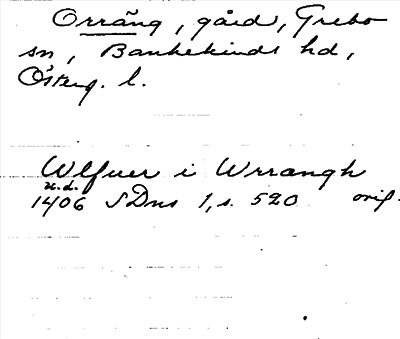 Orräng, gård, Grebo
sn, Bankekinds hd,
Österg. l.
Wlfuer i Wrrangh
u.d.
1406 SDns 1, s. 520 orig.